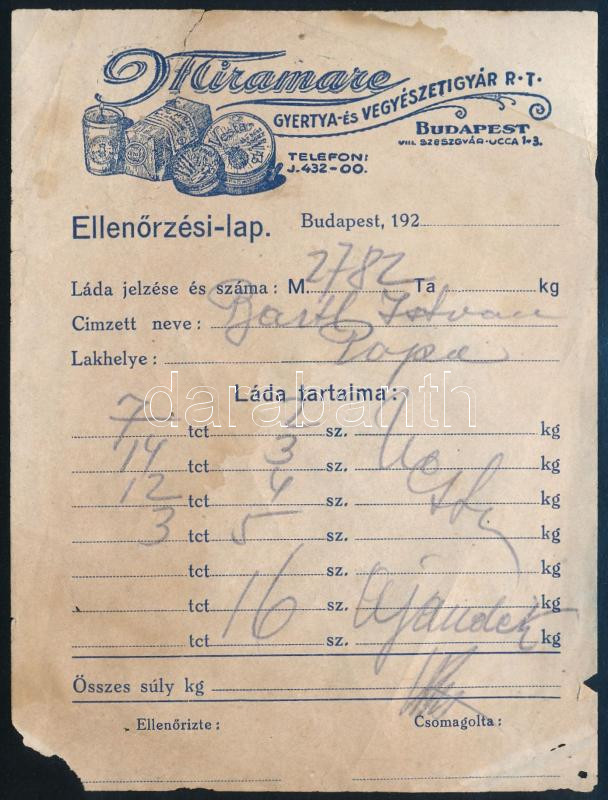 Miramare
GYERTYA-és VEGYÉSZETIGYÁR R·T·
BUDAPEST
VIII. SZESZGYÁR-UCCA 1-3.
TELEFON:
J.432-00.
Ellenőrzési-lap.
Budapest, 192
Láda jelzése és száma: M. 2782 Ta kg
Cimzett neve: Bartl Istvan
Lakhelye: Papa
Láda tartalma:
7 tct 2 sz. kg
14 tct 3 sz. kg
12 tct 4 sz. kg
3 tct 5 sz. kg
tct sz. kg
tct 16 sz. Ajándék kg
tct sz. kg
Összes súly kg
Ellenőrizte: Csomagolta:
darabanth